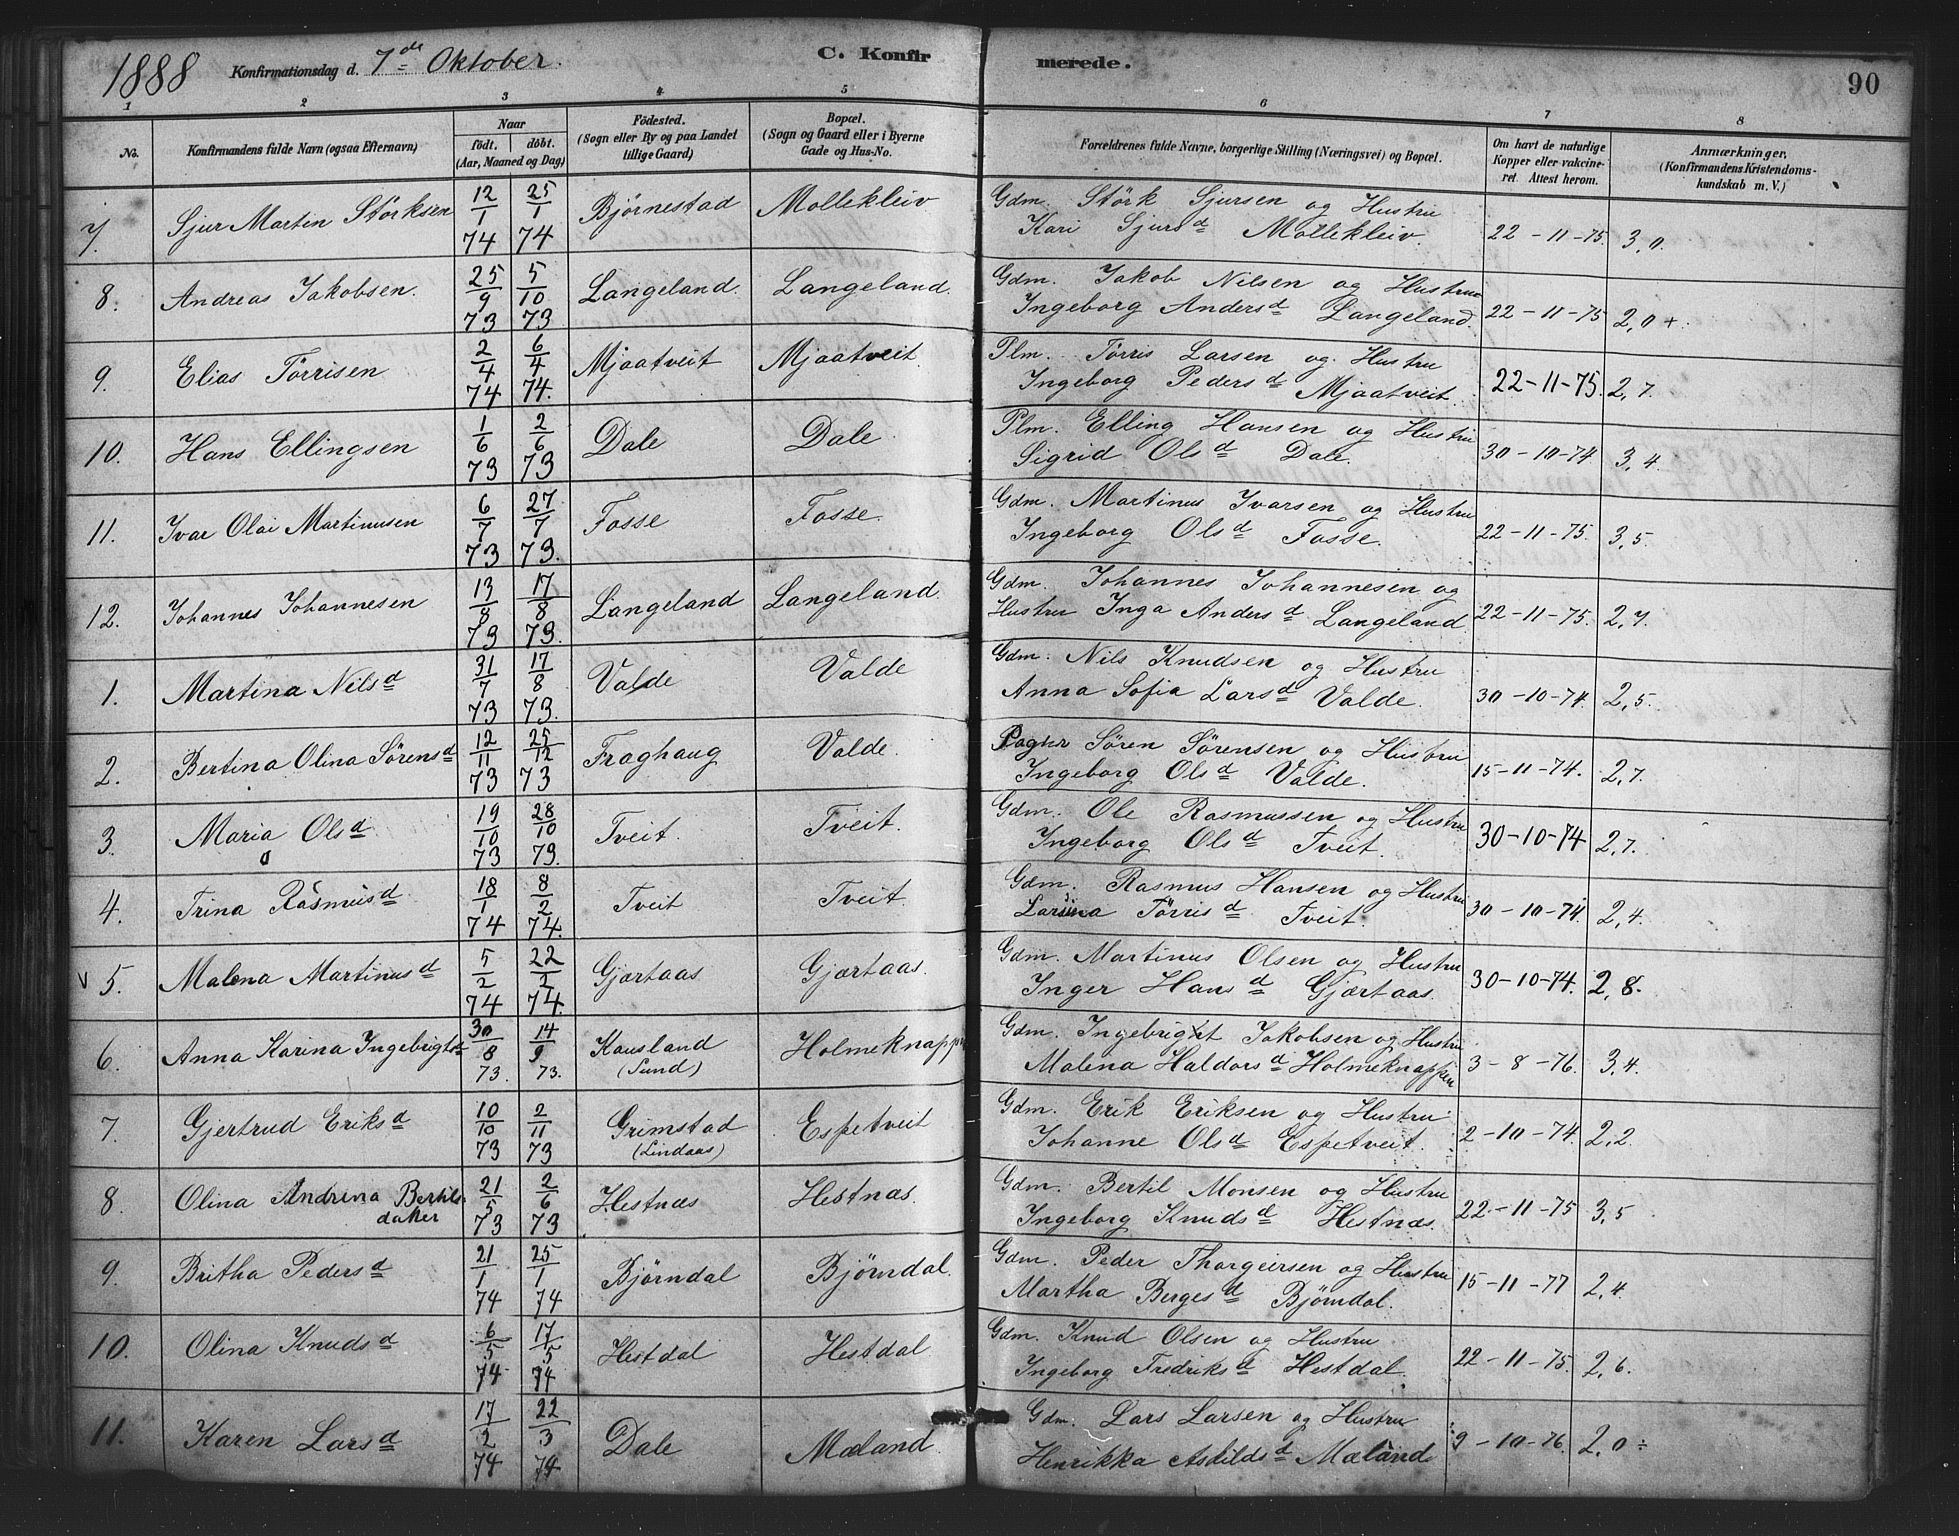 1888 Konfirmationsdag d. 7de Oktober. C. Konfirmerede. 90
1 2 3 4 5 6 7 8
No. Konfirmandens fulde Navn (ogsaa Efternavn) Naar født. døbt. (Aar, Maaned og Dag) Fødested. (Sogn eller By og paa Landet tillige Gaard) Bopæl. (Sogn og Gaard eller i Byerne Gade og Hus-No. Forældrenes fulde Navne, borgerlige Stilling (Næringsvei) og Bopæl. Om havt de naturlige Kopper eller vakcineret. Attest herom. Anmærkninger, (Konfirmandens Kristendomskundskab m. V.)
7. Sjur Martin Størksen 12/1 74 25/1 74 Bjørnestad Mollekleiv Gdm. Størk Sjursen og Hustru
Kari Sjursd Mollekleiv. 22-11-75. 3,0.
8. Andreas Jakobsen. 25/9 73 5/10 73 Langeland. Langeland. Gdm. Jakob Nilsen og Hustru
Ingeborg Andersd Langeland. 22-11-75 2,0 +.
9. Elias Tørrisen 2/4 74 6/4 74. Mjaatveit Mjaatveit Plm. Tørris Larsen og Hustru
Ingeborg Pedersd Mjaatveit. 22-11-75. 2,7.
10. Hans Ellingsen 1/6 73 2/6 73 Dale Dale Plm. Elling Hansen og Hustru
Sigrid Olsd Dale. 30-10-74. 3,4.
11. Ivar Olai Martinusen 6/7 73 27/7 73. Fosse Fosse. Gdm. Martinus Ivarsen og Hustru
Ingeborg Olsd Fosse. 22-11-75. 3,5.
12. Johannes Johannesen 13/8 73 17/8 73. Langeland Langeland. Gdm. Johannes Johannesen og
Hustru Inga Andersd Langeland. 22-11-75. 2,7.
1. Martina Nilsd 31/7 73 17/8 73. Valde Valde Gdm. Nils Knudsen og Hustru
Anna Sofia Larsd Valde. 30-10-74. 2,5.
2. Bertina Olina Sørensd 12/11 73 25/12 73 Fraghaug Valde. Søren Sørensen og Hustru
Ingeborg Olsd Valde. 15-11-74. 2,7.
3. Maria Olsd 19/10 73 28/10 73. Tveit. Tveit. Gdm. Ole Rasmussen og Hustru
Ingeborg Olsd Tveit. 30-10-74 2,7.
4. Trina Rasmusd 18/1 74 8/2 74. Tveit Tveit. Gdm. Rasmus Hansen og Hustru
Tørrisd Tveit. 30-10-74. 2,4.
v 5. Malena Martinusd 5/2 74 22/2 74. Gjærtaas Gjærtaas. Gdm. Martinus Olsen og Hustru
Inger Hansd Gjærtaas. 30-10-74. 2,8.
6. Anna Karina Ingebrigtd 30/8 73. 14/9 73. Kausland (Sund) Holmeknappen Gdm. Ingebrigt Jakobsen og Hustru
Malena Haldorsd Holmeknappen 3-8-76. 3,4.
7. Gjertrud Eriksd 10/10 73 2/11 73 Grimstad (Lindaas) Espetveit Gdm. Erik Eriksen og Hustru
Johanne Olsd Espetveit. 2-10-74. 2,2.
8. Olina Andrina Bertilsdatter 21/5 73 2/6 73 Hestnæs Hestnæs. Gdm. Bertil Monsen og Hustru
Ingeborg Knudsd Hestnæs. 22-11-75 3,5
9. Britha Pedersd 21/1 74 25/1 74 Bjørndal Bjørndal. Gdm. Peder Thorgeirsen og Hustru
Martha Bergesd Bjørndal. 15-11-77 2,4.
10. Olina Knudsd 6/5 74 17/5 74 Hestdal Hestdal Gdm. Knud Olsen og Hustru
Ingeborg Fredriksd Hestdal. 22-11-75. 2,6.
11. Karen Larsd 17/2 74 22/3 74 Dale Mæland. Gdm. Lars Larsen og Hustru
Henrikka Askildsd Mæland 9-10-76. 2,0 ÷